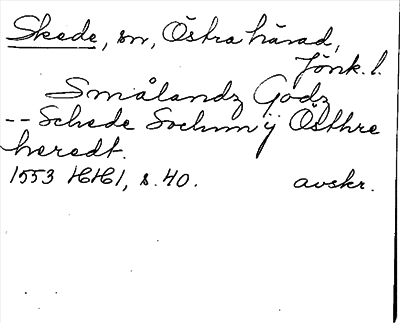 Skede, sn, Östra härad,
Jönk. l.
Smålandz Godz
-- Schede Sochnn ÿ Östhre
heredt.
1553 HH1, s. 40. avskr.